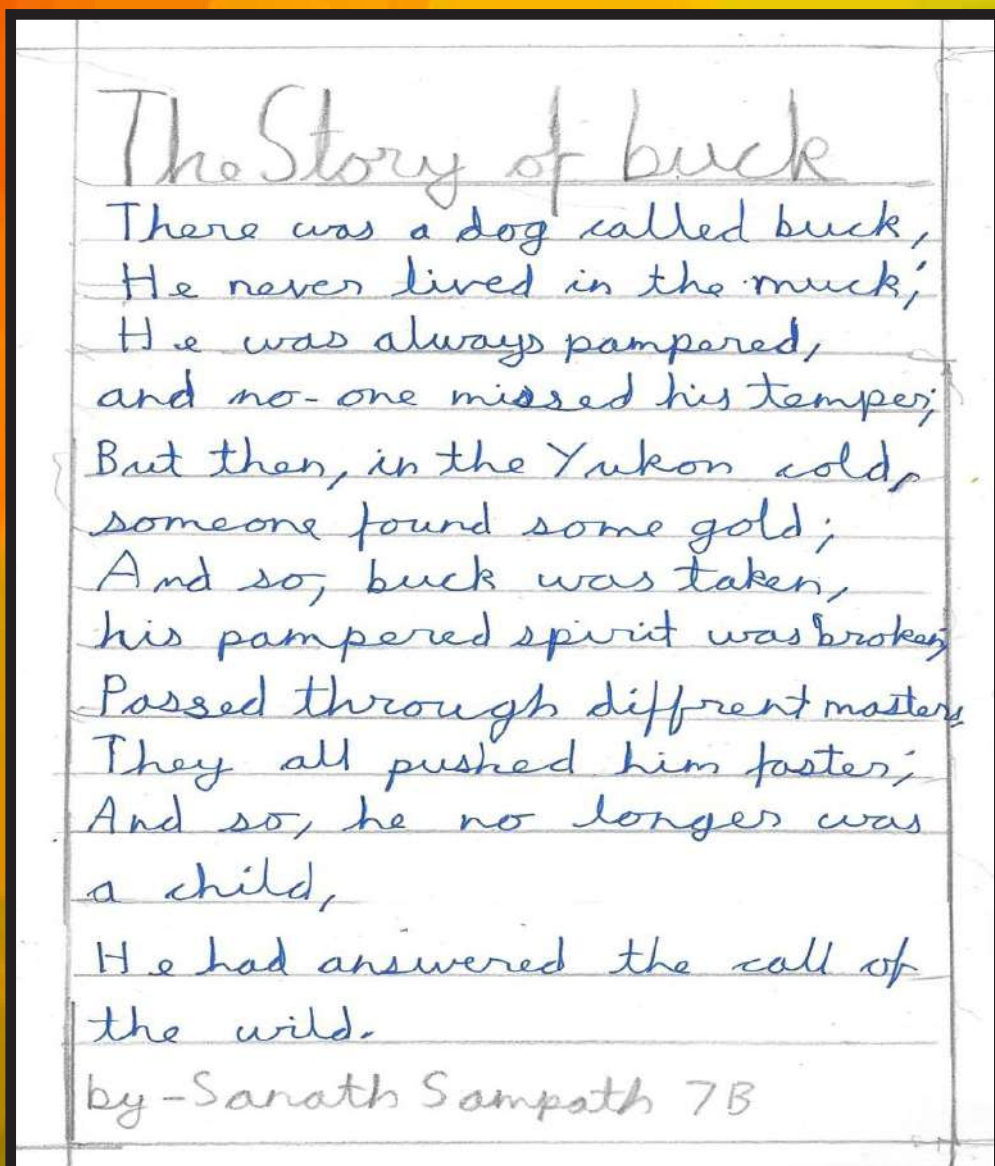 The Story of buck
There was a dog called buck,
He never lived in the muck;
He was always pampered,
and no-one missed his temper;
But then, in the Yukon cold,
someone found some gold;
And so, buck was taken,
his pampered spirit was broken;
Passed through diffrent masters
They all pushed him faster;
And so, he no longer was
a child,
He had answered the call of
the wild.
by-Sanath Sampath 7B